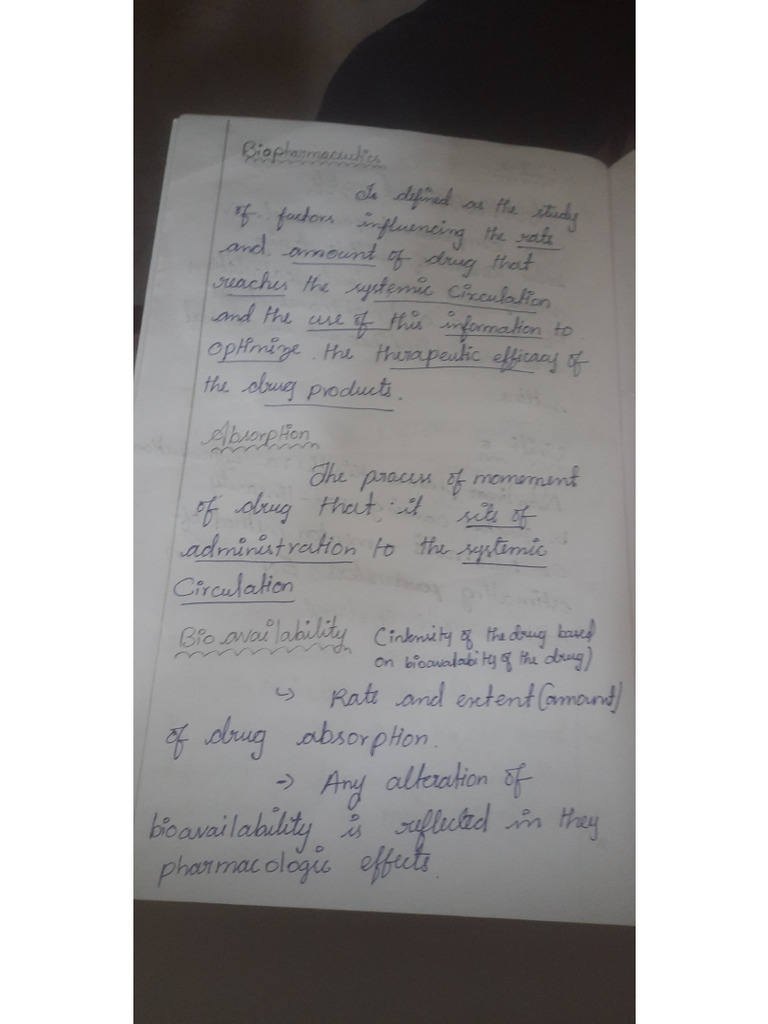 Biopharmaceutics
Is defined as the study
of factors influencing the rate
and amount of drug that
reaches the systemic Circulation
and the use of this information to
optimize the therapeutic efficacy of
the drug products.
Absorption
The process of momement
of drug that it site of
administration to the systemic
Circulation
Bioavailability (intensity of the drug based
on bioavalabity of the drug)
↳ Rate and extent (amount)
of drug absorption.
→ Any alteration of
bioavailability is reflected in they
pharmacologic effects.